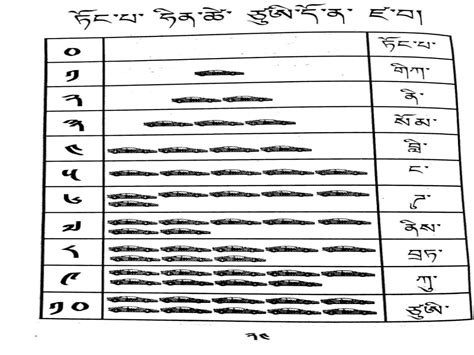 ཏོང་པ་ ཙུཨི་དོན་ ཛ་བ།
༠ ཏོང་པ་
༡ གིཀ་
༢ ནི་
༣ སོམ་
༤ བླི་
༥ ང་
༦ ཌུ་
༧ ནིས་
༨ བྲཏ་
༩ ཀུ་
༡༠ ཙུཨི་